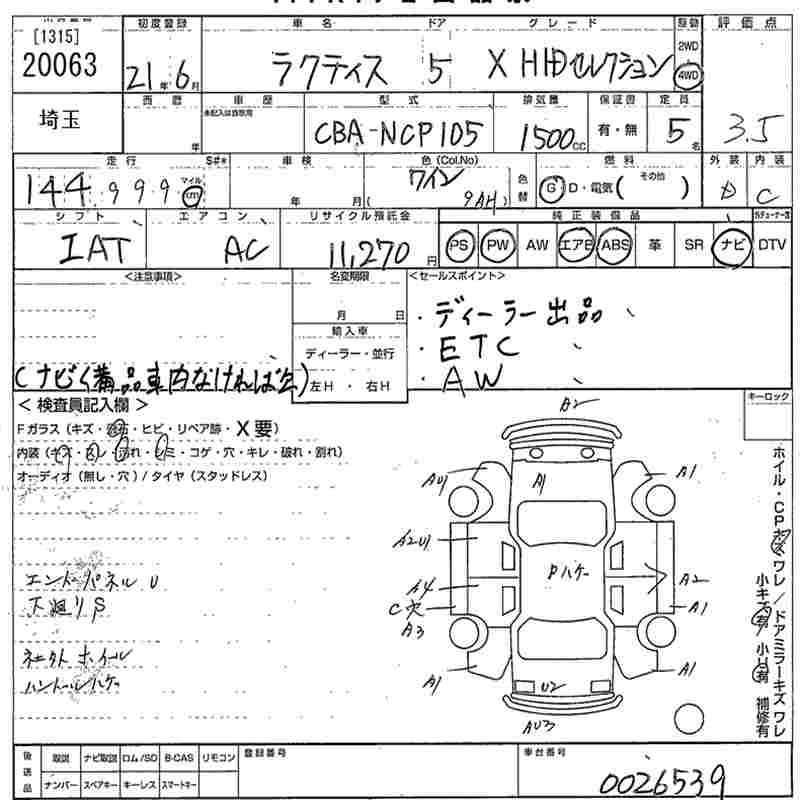 [1315]
20063
初度登録 車名 ドア グレード 駆動 評価点
21年6月 ラクティス 5 X HIDセレクション 2WD 4WD
埼玉 西暦 車歴 型式 排気量 保証書 定員
未記入は自家用
年 CBA-NCP105 1500cc 有・無 5名 3.5
走行 S#* 車検 色(Col.No) 燃料 外装 内装
144,999 マイル km 年 月( ワイン 9AH) 色替 G D・電気( その他 ) D C
シフト エアコン リサイクル預託金 純正装備品
IAT AC 11,270円 PS PW AW エアB ABS 革 SR ナビ DTV
<注意事項> 名変期限 <セールスポイント>
月 日 ・ディーラー出品
輸入車 ・ETC
ディーラー・並行 ・AW
(ナビ(備品車内なければ欠) 左H ・ 右H
<検査員記入欄> キーロック
Fガラス(キズ・飛石・ヒビ・リペア跡・X要)
内装(キズ・スレ・汚れ・シミ・コゲ・穴・キレ・破れ・割れ)
オーディオ(無し・穴)/タイヤ(スタッドレス)
A2
AU1 A1 A1
A2U1
Pハゲ
A4 A2
C穴 A1
A3
A1 U2 A1
AU3
エンドパネルU
下廻りS
社外ホイール
ハンドルハゲ
ホイル・CPキズワレ/ドアミラーキズワレ
小キズ有 小U有 補修有
後送品 取説 ナビ取説 ロム/SD B-CAS リモコン 登録番号 車台番号
ナンバー スペアキー キーレス スマートキー 0026539